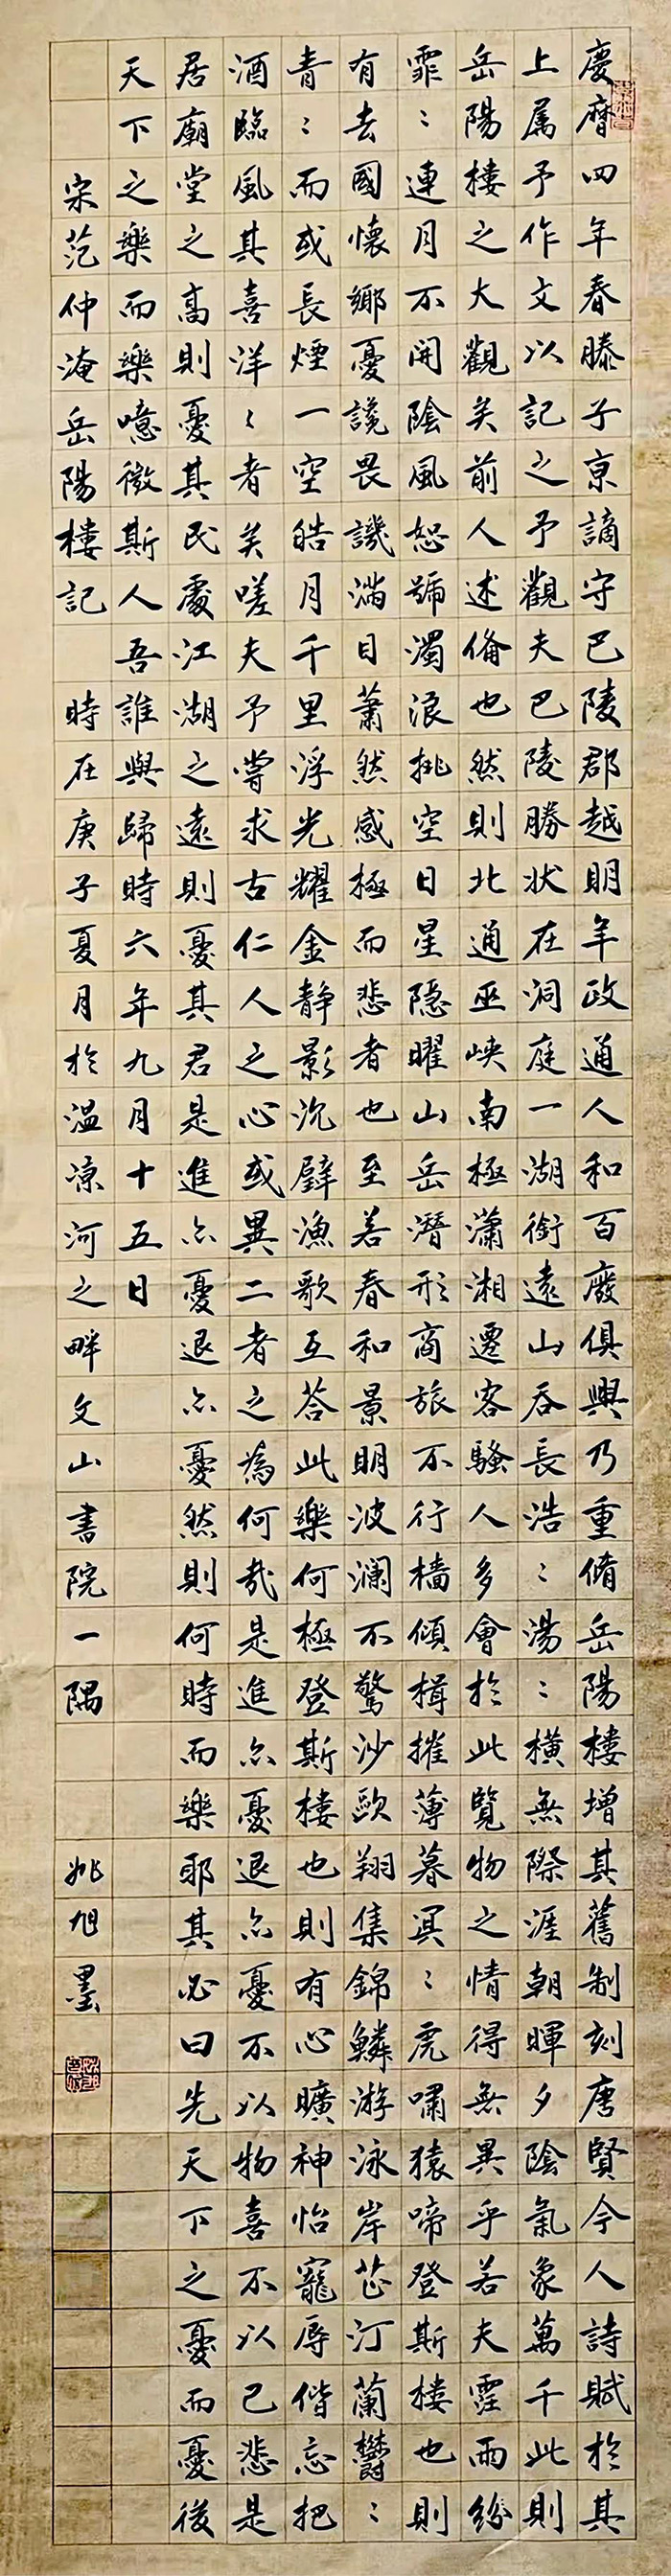 慶曆四年春滕子京謫守巴陵郡越明年政通人和百廢俱興乃重脩岳陽樓增其舊制刻唐賢今人詩賦於其
上属予作文以記之予觀夫巴陵勝状在洞庭一湖銜遠山吞長浩〻湯〻橫無際涯朝暉夕陰氣象萬千此則
岳陽樓之大觀矣前人述俻也然則北通巫峽南極瀟湘遷客騷人多會於此覽物之情得無異乎若夫霪雨紛
霏〻連月不開陰風怒號濁浪排空日星隱曜山岳潛形商旅不行檣傾楫摧薄暮冥〻虎嘯猿啼登斯樓也則
有去國懷鄉憂讒畏譏滿目蕭然感極而悲者也至若春和景明波瀾不驚沙歐翔集錦鱗游泳岸芷汀蘭鬱〻
青〻而或長煙一空皓月千里浮光耀金静影沉璧漁歌互答此樂何極登斯樓也則有心曠神怡寵辱偕忘把
酒臨風其喜洋〻者矣嗟夫予嘗求古仁人之心或異二者之為何哉是進亦憂退亦憂不以物喜不以己悲是
居廟堂之高則憂其民處江湖之遠則憂其君是進亦憂退亦憂然則何時而樂耶其必曰先天下之憂而憂後
天下之樂而樂噫微斯人吾誰與歸時六年九月十五日
宋范仲淹岳陽樓記 時在庚子夏月於温凉河之畔文山書院一隅 姚旭墨